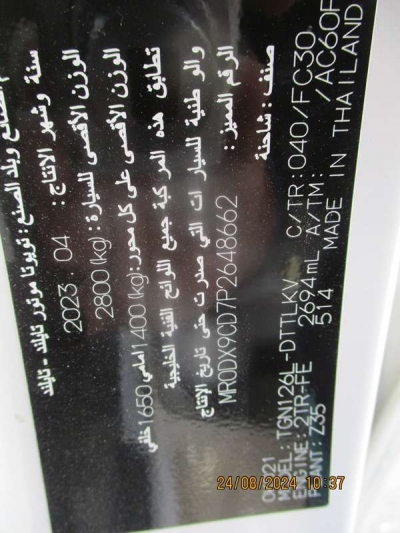 الصانع وبلد الصنع : تويوتا موتور تايلاند - تايلاند
سنة وشهر الانتاج : 2023 . 04
الوزن الأقصى للسيارة : 2800 (kg)
الوزن الأقصى على كل محور : (kg) 1400 امامي 1650 خلفي
تطابق هذه المركبة جميع اللوائح الفنية الخليجية
والوطنية للسيارات التي صدرت حتى تاريخ الإنتاج
الرقم المميز : MR0DX9CD7P2648662
صنف : شاحنة
MODEL : TGN126L-DTTLKV C/TR: 040/FC30
ENGINE: 2TR-FE 2694mL A/TM: /AC60F
PLANT: Z35 514 MADE IN THAILAND
24/08/2024 10:37